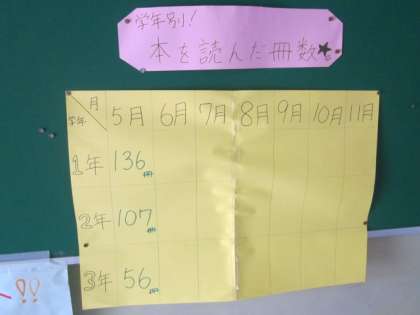 学年別!
本を読んだ冊数★
月
学年 5月 6月 7月 8月 9月 10月 11月
1年 136冊
2年 107冊
3年 56冊
!!